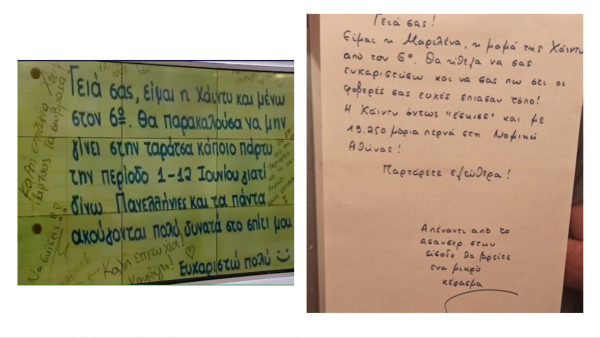 Γειά σας, είμαι η Χάιντυ και μένω
στον 6º. Θα παρακαλούσα να μην
γίνει στην ταράτσα κάποιο πάρτυ
την περίοδο 1-12 Ιουνίου γιατί
δίνω Πανελλήνιες και τα πάντα
ακούγονται πολύ δυνατά στο σπίτι μου
Ευχαριστώ πολύ
Καλή επιτυχία!
Γειά σας!
Είμαι η Μαριλένα, η μαμά της Χάιντυ
από τον 6º. Θα ήθελα να σας
ευχαριστήσω και να σας πω ότι οι
φοβερές σας ευχές έπιασαν τόπο!
Η Χάιντυ όντως "έσκισε" και με
19.250 μόρια περνά στη Νομική
Αθήνας!
Παρτάρετε ελεύθερα!
Απέναντι από το
ασανσέρ στην
είσοδο θα βρείτε
ένα μικρό
κέρασμα